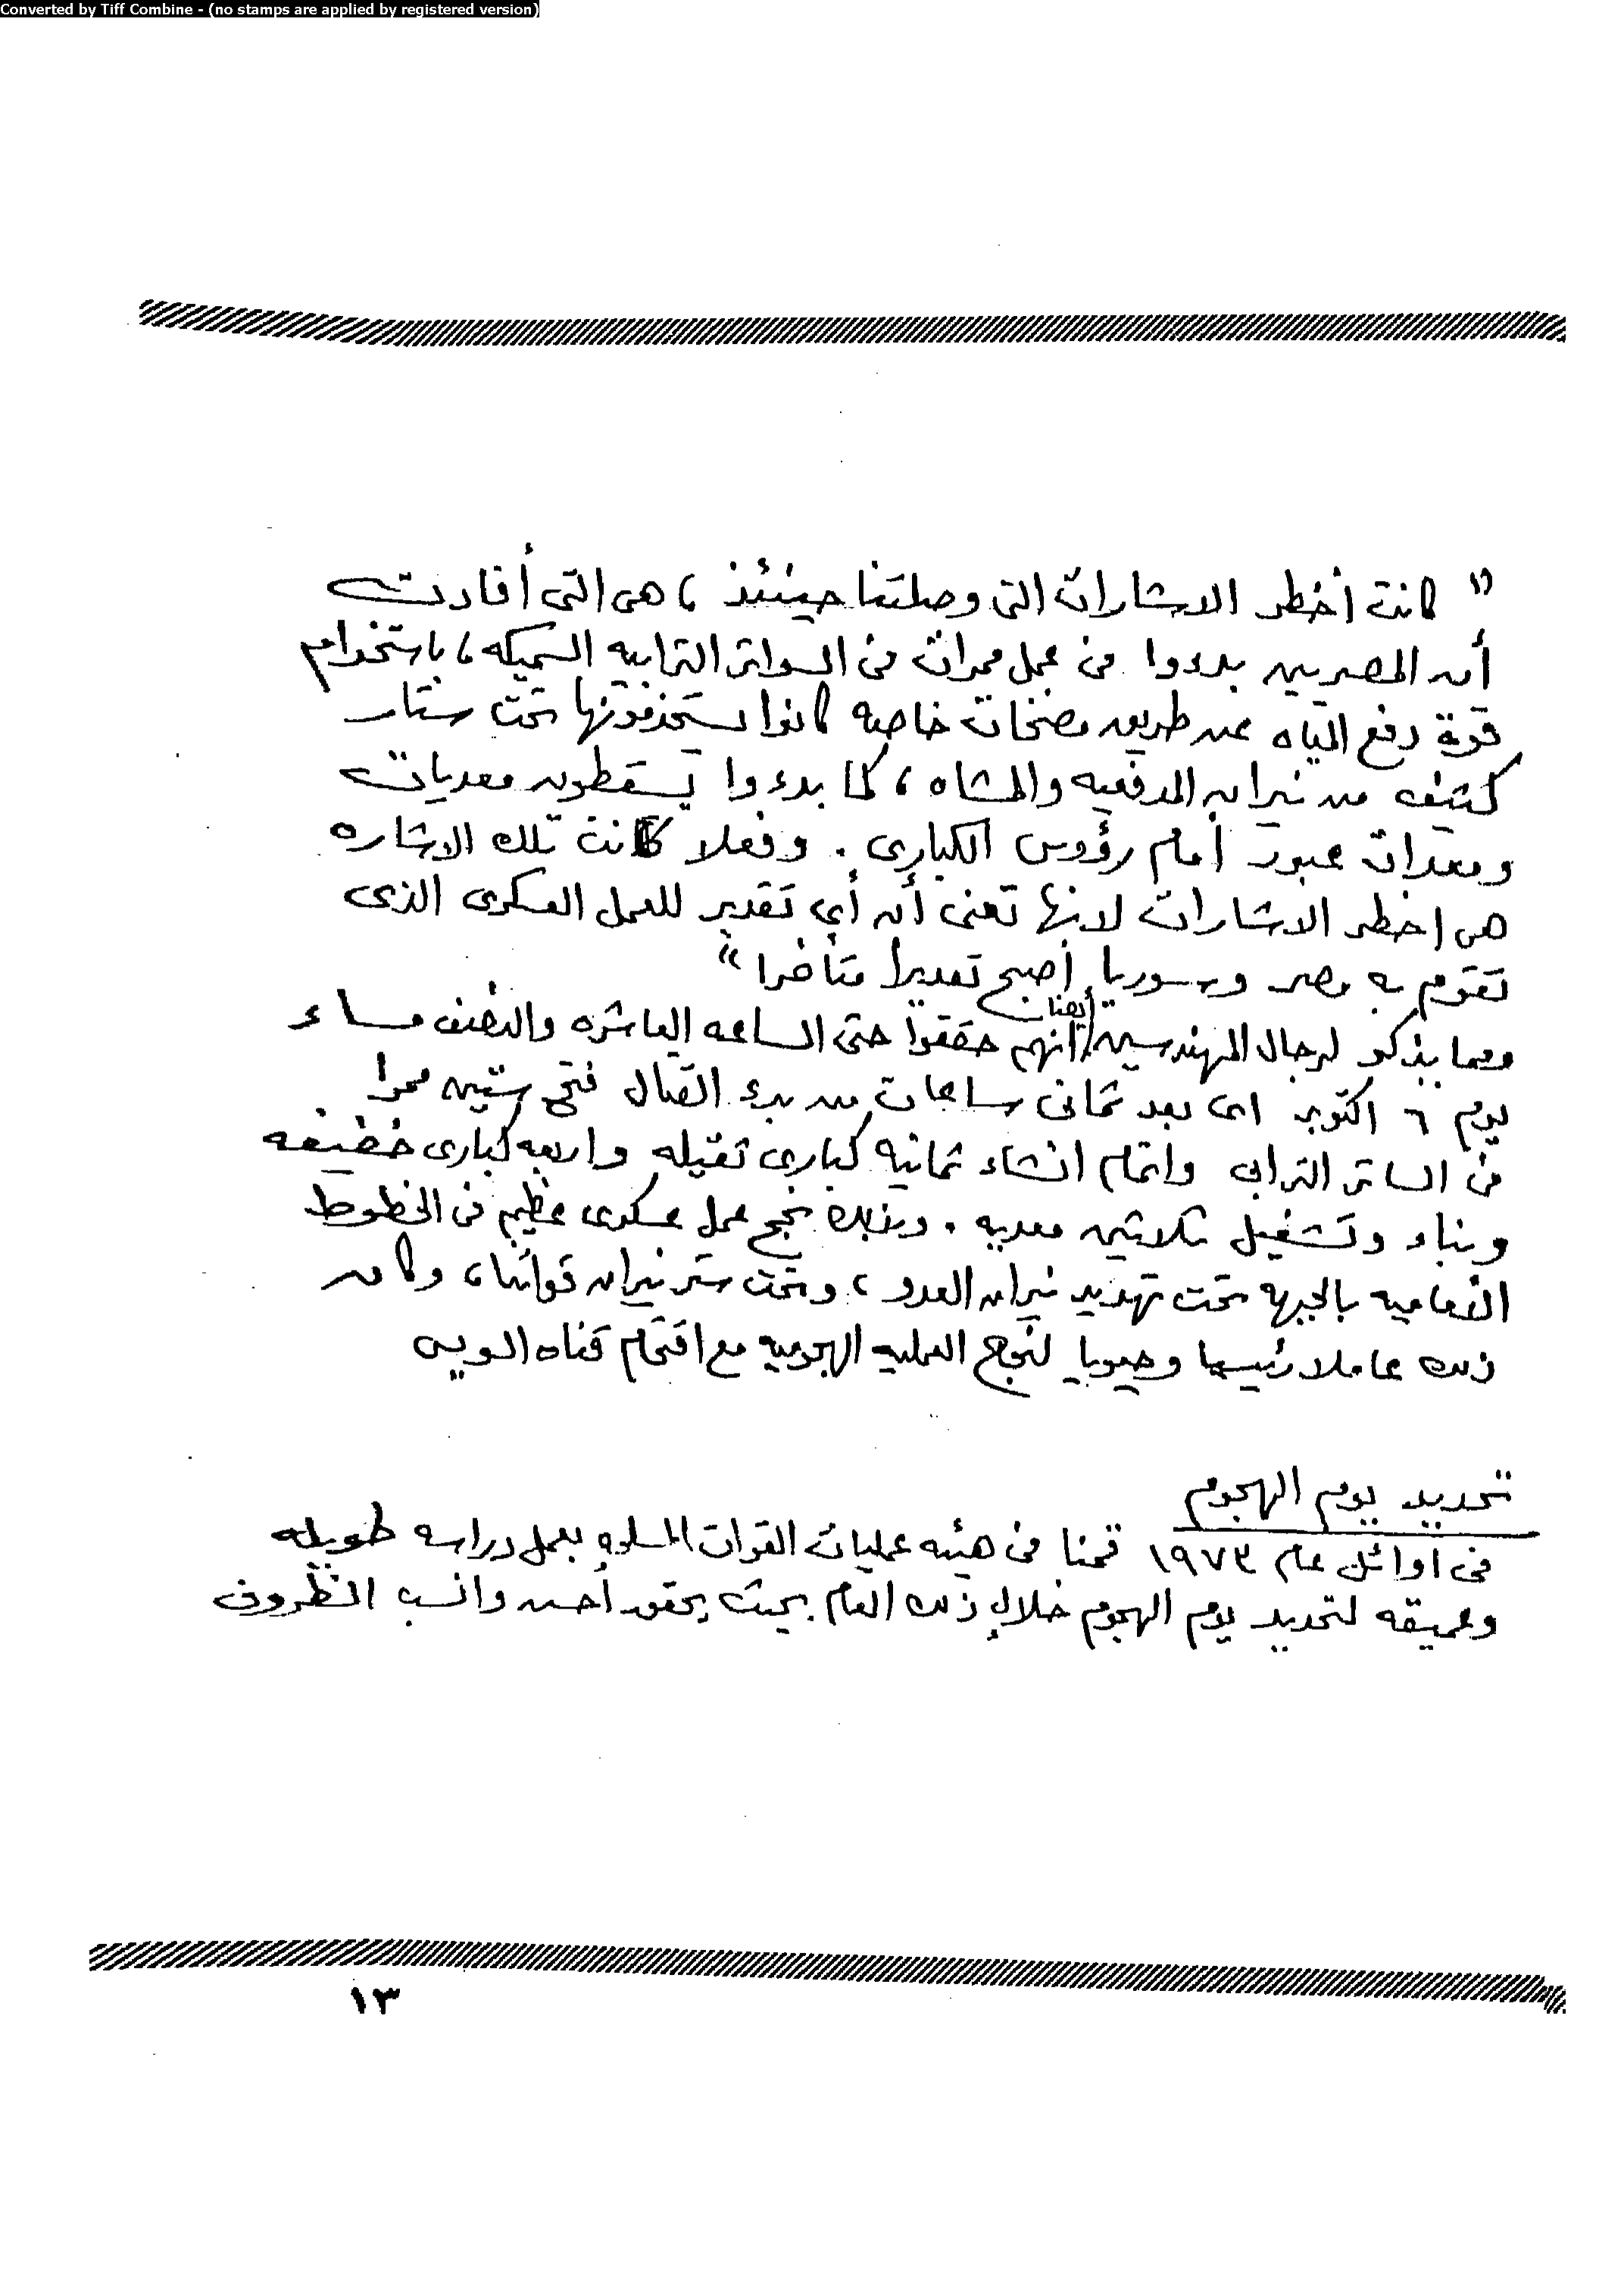 Converted by Tiff Combine - (no stamps are applied by registered version)
" كانت أخطر الاشارات التى وصلتنا حينئذ ، هى التى أفادت
أن المصريين بدءوا فى عمل ممرات فى السواتر الترابيه السميكه ، باستخدام
قوة دفع المياه عن طريق مضخات خاصه كانوا يستخدمونها تحت ستار
كثيف من نيران المدفعيه والمشاه ، كما بدءوا يسقطون معديات
ومعدات عبور أمام رؤوس الكبارى . وفعلا كانت تلك الاشاره
هى اخطر الاشارات لانها تعنى أن أى تقدير للعمل العسكرى الذى
تقوم به مصر وسوريا أصبح تقديرا متأخرا "
ومما يذكر لرجال المهندسين أيضا انهم حققوا حتى الساعه العاشره والنصف مساء
يوم ٦ اكتوبر اى بعد ثمانى ساعات من بدء القتال فتح ستين ممرا
فى الساتر الترابى واتمام انشاء ثمانيه كبارى ثقيله واربعه كبارى خفيفه
وبناء وتشغيل ثلاثين معديه . وبذلك نجح عمل عسكرى عظيم فى الخطوط
الأماميه بالجبهه تحت تهديد نيران العدو ، وتحت ستر نيران قواتنا ، وكان
ذلك عاملا رئيسيا وحيويا لنجاح العمليه الهجوميه مع اقتحام قناه السويس
تحديد يوم الهجوم
فى اوائل عام ١٩٧٣ قمنا فى هيئه عمليات القوات المسلحه بعمل دراسه طويله
وعميقه لتحديد يوم الهجوم خلال ذلك العام بحيث يحقق أحسن وانسب الظروف
١٣